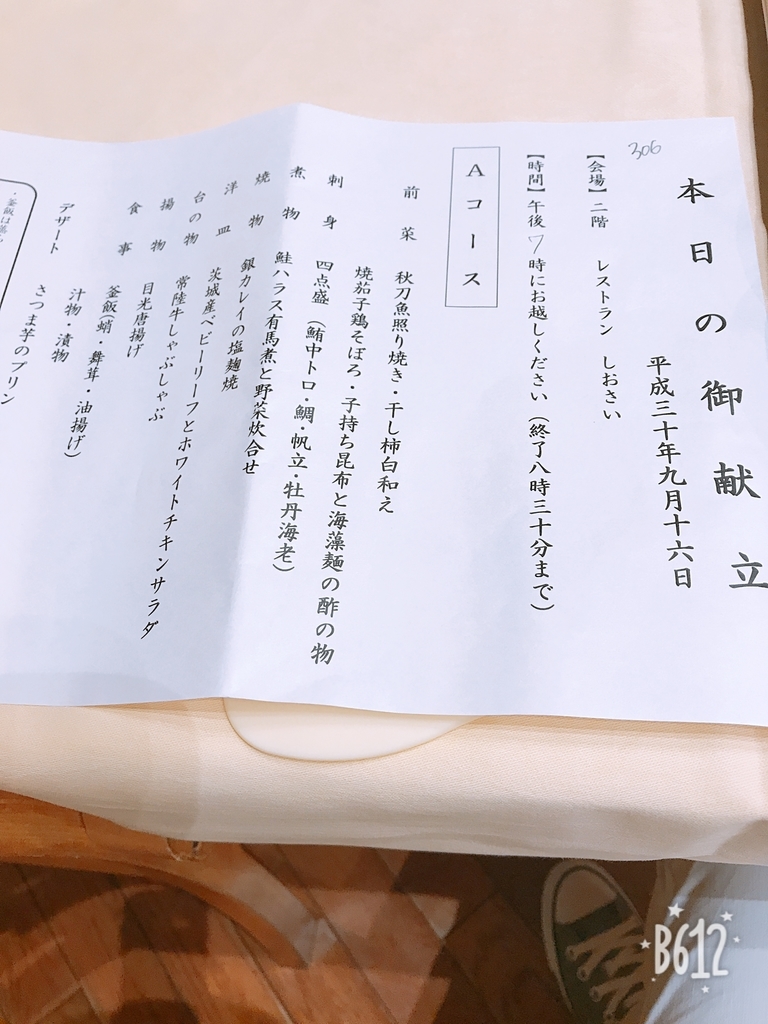 本日の御献立
平成三十年九月十六日
306
【会場】二階 レストラン しおさい
【時間】午後7時にお越しください(終了八時三十分まで)
Aコース
前菜 秋刀魚照り焼き・干し柿白和え
焼茄子鶏そぼろ・子持ち昆布と海藻麺の酢の物
刺身 四点盛(鮪中トロ・鯛・帆立・牡丹海老)
煮物 鮭ハラス有馬煮と野菜炊合せ
焼物 銀カレイの塩麹焼
洋皿 茨城産ベビーリーフとホワイトチキンサラダ
台の物 常陸牛しゃぶしゃぶ
揚物 目光唐揚げ
食事 釜飯(蛸・舞茸・油揚げ)
汁物・漬物
デザート さつま芋のプリン
釜飯は
B612